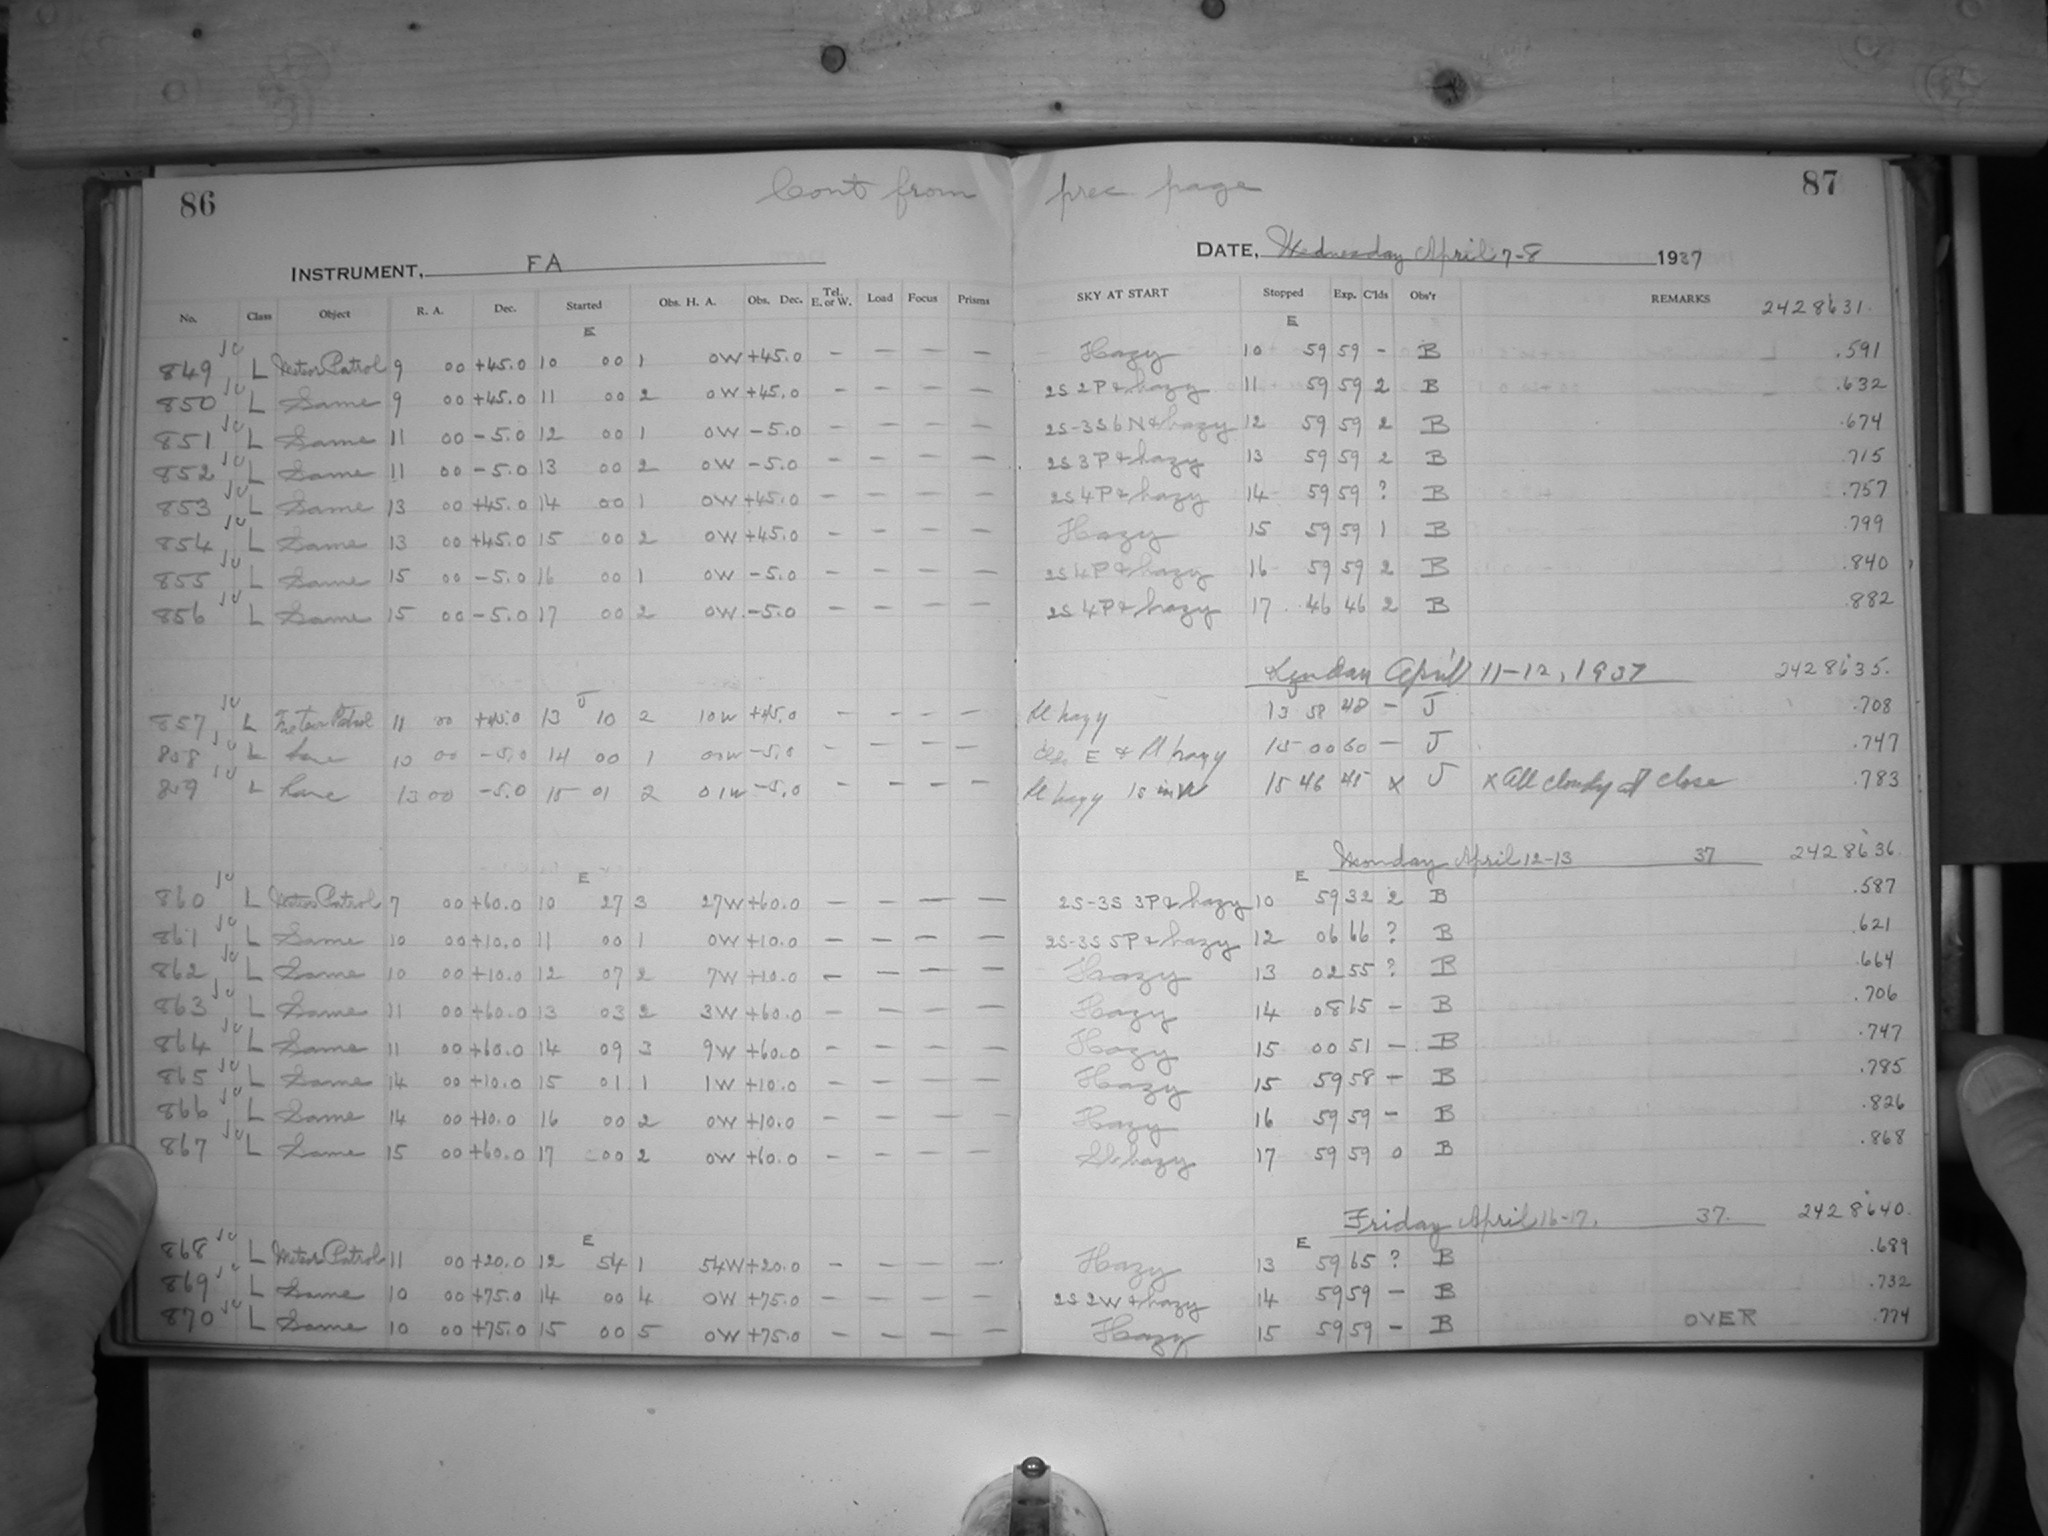 86
Cont from prec page
87
INSTRUMENT, FA
DATE, Wednesday April 7-8 1937
No. Class Object R. A. Dec. Started Obs. H. A. Obs. Dec. Tel. E. or W. Load Focus Prisms SKY AT START Stopped Exp. C'lds Obs'r REMARKS 2428631.
E E
849 L Meteor Patrol 9 00 +45.0 10 00 1 0W +45.0 - - - - Hazy 10 59 59 - B .591
850 L Same 9 00 +45.0 11 00 2 0W +45.0 - - - - 2S 2P & hazy 11 59 59 2 B .632
851 L Same 11 00 -5.0 12 00 1 0W -5.0 - - - - 2S-3S 6N & hazy 12 59 59 2 B .674
852 L Same 11 00 -5.0 13 00 2 0W -5.0 - - - - 2S 3P & hazy 13 59 59 2 B .715
853 L Same 13 00 +45.0 14 00 1 0W +45.0 - - - - 2S 4P & hazy 14 59 59 ? B .757
854 L Same 13 00 +45.0 15 00 2 0W +45.0 - - - - Hazy 15 59 59 1 B .799
855 L Same 15 00 -5.0 16 00 1 0W -5.0 - - - - 2S 4P & hazy 16 59 59 2 B .840
856 L Same 15 00 -5.0 17 00 2 0W -5.0 - - - - 2S 4P & hazy 17 46 46 2 B .882
Sunday April 11-12, 1937 2428635.
J
857 L Meteor Patrol 11 00 +45.0 13 10 2 10W +45.0 - - - - Sl hazy 13 58 48 - J .708
858 L Same 13 00 -5.0 14 00 1 00W -5.0 - - - - Clds E & Sl hazy 15 00 60 - J .747
859 L Same 13 00 -5.0 15 01 2 01W -5.0 - - - - Sl hazy 1S in W 15 46 45 x J x All cloudy at close .783
Monday April 12-13 37 2428636.
E E
860 L Meteor Patrol 7 00 +60.0 10 27 3 27W +60.0 - - - - 2S-3S 3P & hazy 10 59 32 2 B .587
861 L Same 10 00 +10.0 11 00 1 0W +10.0 - - - - 2S-3S 5P & hazy 12 06 66 ? B .621
862 L Same 10 00 +10.0 12 07 2 7W +10.0 - - - - Hazy 13 02 55 ? B .664
863 L Same 11 00 +60.0 13 03 2 3W +60.0 - - - - Hazy 14 08 65 - B .706
864 L Same 11 00 +60.0 14 09 3 9W +60.0 - - - - Hazy 15 00 51 - B .747
865 L Same 14 00 +10.0 15 01 1 1W +10.0 - - - - Hazy 15 59 58 - B .785
866 L Same 14 00 +10.0 16 00 2 0W +10.0 - - - - Hazy 16 59 59 - B .826
867 L Same 15 00 +60.0 17 00 2 0W +60.0 - - - - Sl hazy 17 59 59 0 B .868
Friday April 16-17, 37. 2428640.
E E
868 L Meteor Patrol 11 00 +20.0 12 54 1 54W +20.0 - - - - Hazy 13 59 65 ? B .689
869 L Same 10 00 +75.0 14 00 4 0W +75.0 - - - - 2S 2W & hazy 14 59 59 - B .732
870 L Same 10 00 +75.0 15 00 5 0W +75.0 - - - - Hazy 15 59 59 - B OVER .774